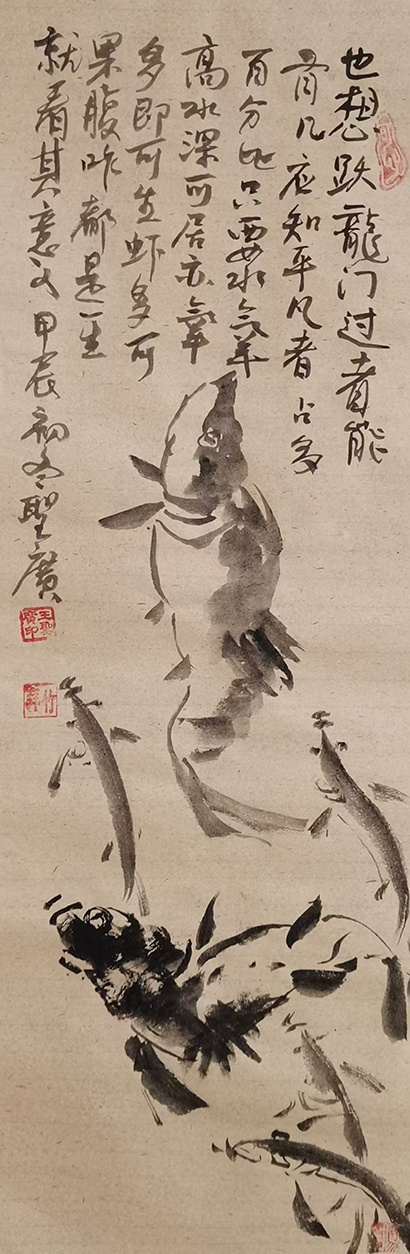 也想跃龍门过者能
有几应知平凡者占多
百分比只要水氧
高水深可居亦氧
多即可生虾多可
果腹咋都是一生
就看其意义甲辰初冬聖廣
王聖廣印